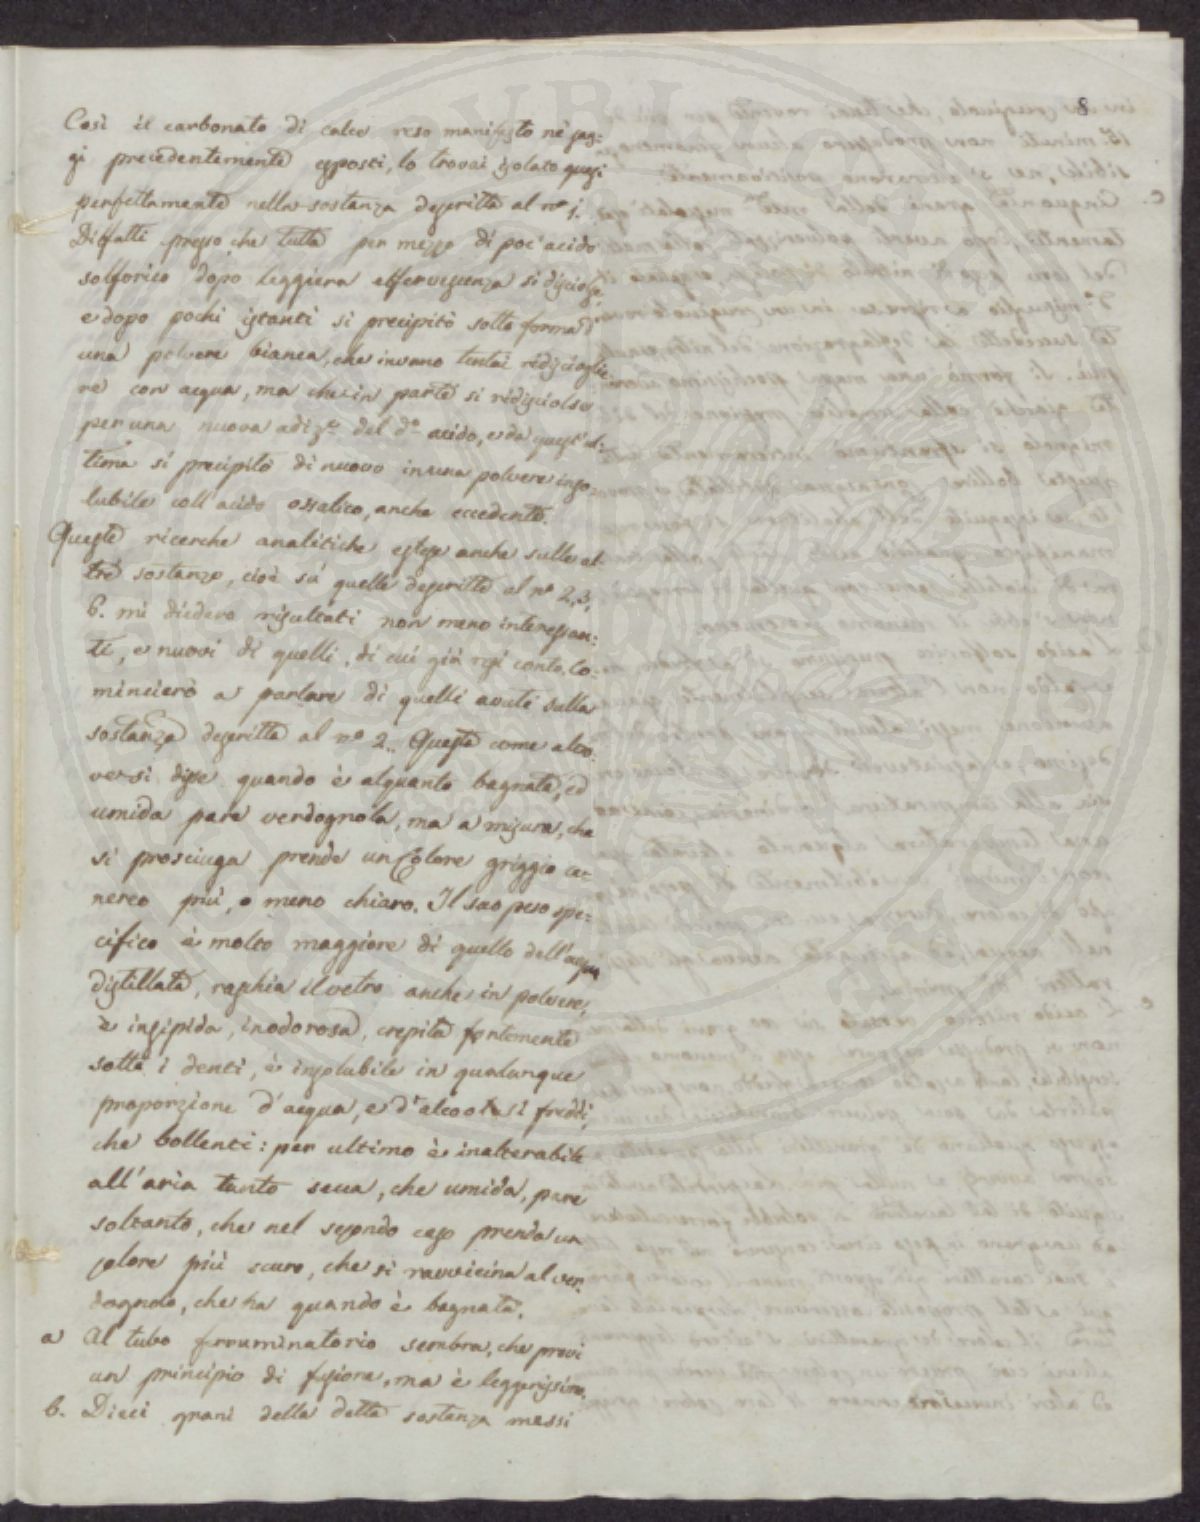 8
Così il carbonato di calce reso manifesto nè sag:
gi precedentemente esposti, lo trovai isolato quasi
perfettamente nella sostanza descritta al nº 1.
Diffatti presso che tutta per mezzo di poc'acido
solforico dopo leggiera effervescenza si disciolse,
e dopo pochi istanti si precipitò sotto forma d'
una polvere bianca, che invano tentai ridiscioglie:
re con acqua, ma che in parte si ridisciolse
per una nuova adizne. del do. acido, e da quest'ul:
tima si precipitò di nuovo in una polvere inso:
lubile coll'acido ossalico, anche eccedente.
Queste ricerche analitiche estese anche sulle al:
tre sostanze, cioè su quelle descritte al nº 2, 3,
6. mi diedero risultati non meno interessan:
ti, e nuovi di quelli, di cui già resi conto. Co:
mincierò a parlare di quelli avuti sulla
sostanza descritta al nº 2.. Questa come altro:
versi disse quando è alquanto bagnata, ed
umida pare verdognola, ma a misura, che
si prosciuga prende un Colore griggio ce:
nereo più, o meno chiaro. Il suo peso spe:
cifico è molto maggiore di quello dell'acqua
distillata, raschia il vetro anche in polvere,
è insipida, inodorosa, crepita fortemente
sotto i denti, è insolubile in qualunque
proporzione d'acqua, e d'alcool sì freddi,
che bollenti: per ultimo è inalterabile
all'aria tanto secca, che umida, pare
soltanto, che nel secondo caso prenda un
colore più scuro, che si ravvicina al ver:
dognolo, che ha quando è bagnata.
a Al tubo ferruminatorio sembra, che provi
un principio di fusione, ma è leggerissimo.
b. Dieci grani della detta sostanza messi